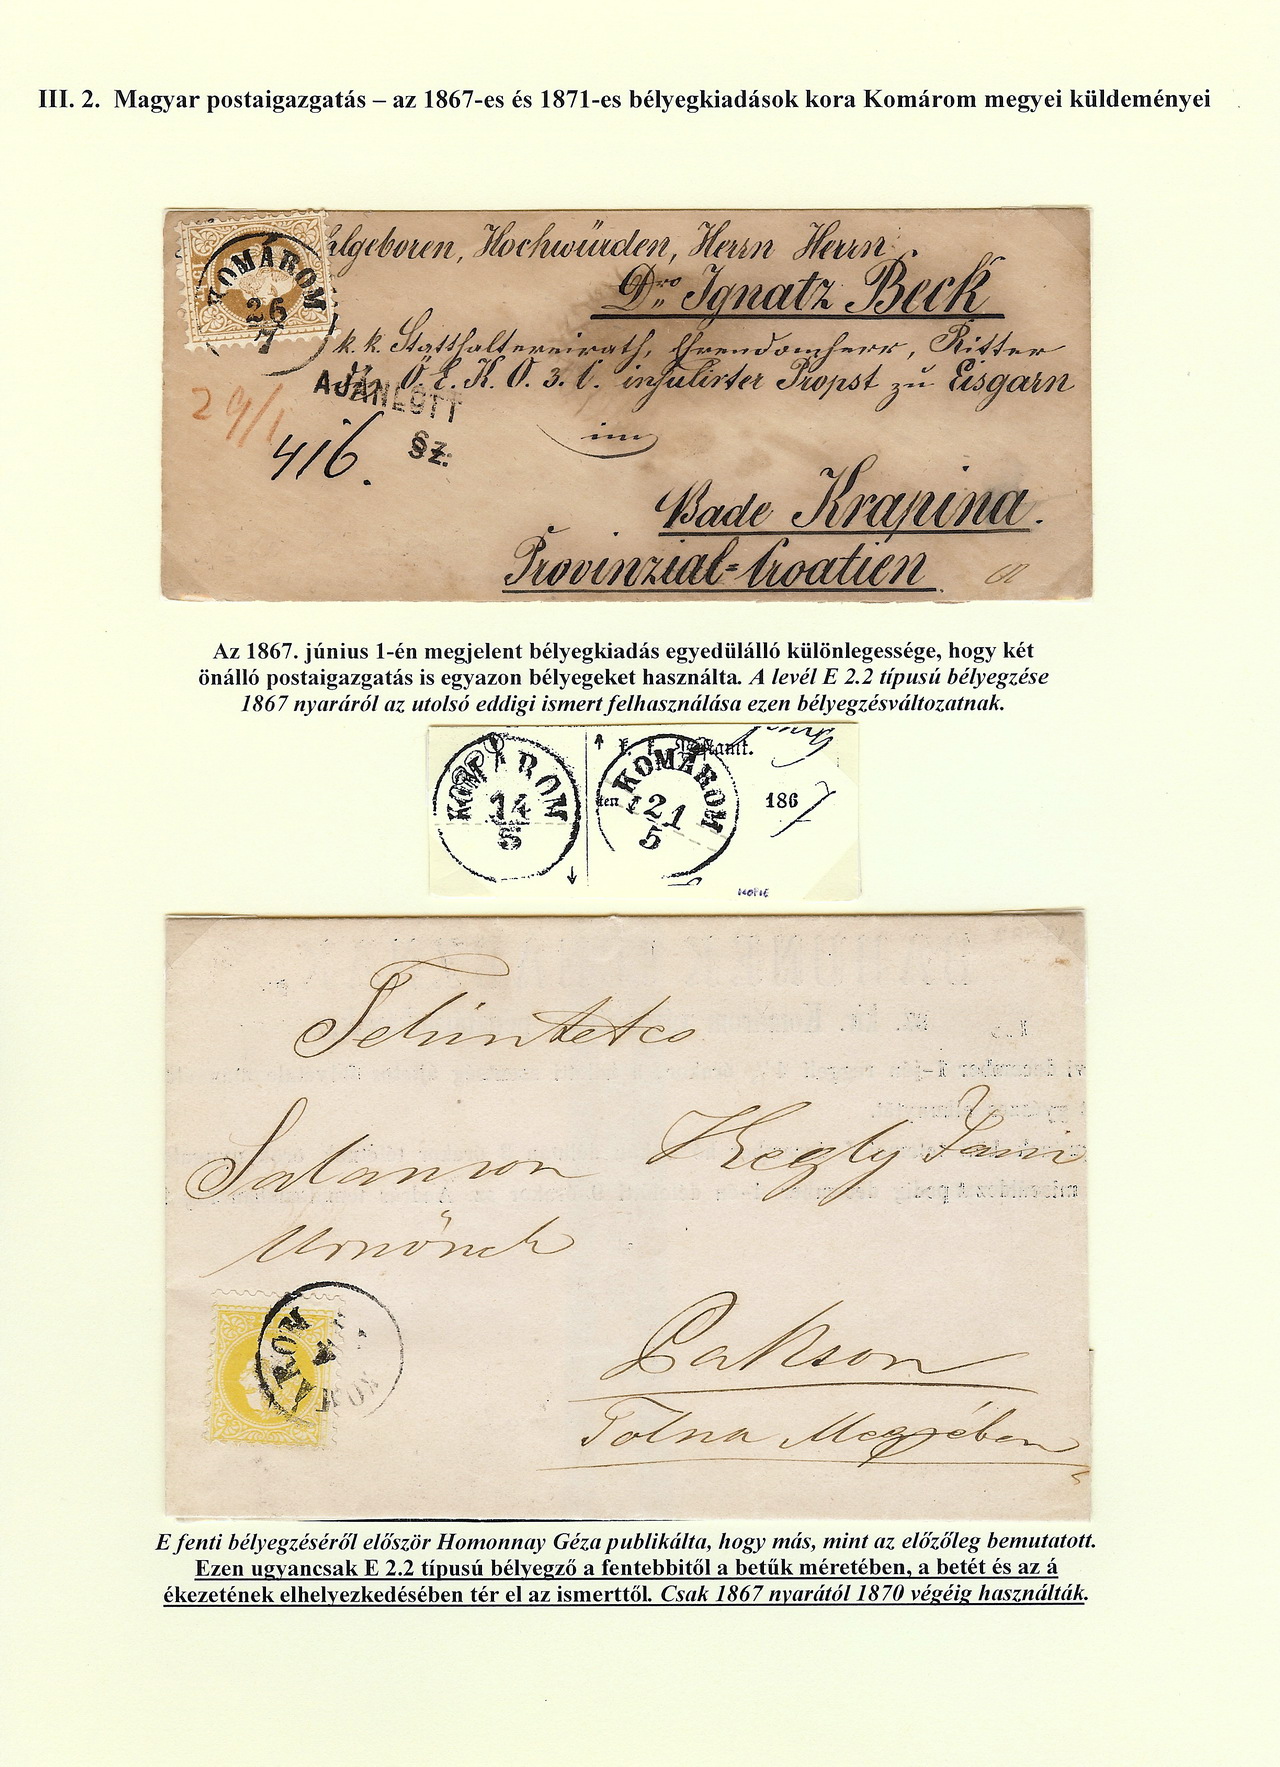 III. 2. Magyar postaigazgatás – az 1867-es és 1871-es bélyegkiadások kora Komárom megyei küldeményei
hlgeboren, Hochwürden, Herrn Herrn
Dro Ignatz Beck
KOMÁROM
26
7
k. k. Statthaltereirath, Ehrendomherr, Ritter
Ö. E. K. O. 3. C. insulirter Propst zu Eisgarn
AJÁNLOTT
Sz:
416.
im
Bade Krapina.
Provinzial=Croatien
Az 1867. június 1-én megjelent bélyegkiadás egyedülálló különlegessége, hogy két
önálló postaigazgatás is egyazon bélyegeket használta. A levél E 2.2 típusú bélyegzése
1867 nyaráról az utolsó eddigi ismert felhasználása ezen bélyegzésváltozatnak.
KOMÁROM
14
5
KOMÁROM
21
5
ten
186
KOPIE
Tekintetes
Salamon Kegly Jani
Urnönek
KOMÁROM
Pakson
Tolna Megyében
E fenti bélyegzéséről először Homonnay Géza publikálta, hogy más, mint az előzőleg bemutatott.
Ezen ugyancsak E 2.2 típusú bélyegző a fentebbitől a betűk méretében, a betét és az á
ékezetének elhelyezkedésében tér el az ismerttől. Csak 1867 nyarától 1870 végéig használták.